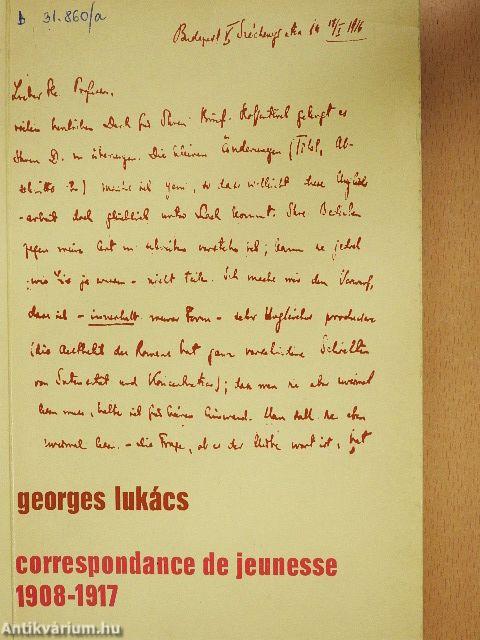 b 31.860/a
Budapest V Széchenyi utca 14 17/I 1916
Lieber Hr. Professor,
vielen herzlichen Dank für Ihren Brief. Hoffentlich gelingt es
Ihnen D. zu überzeugen. Die kleinen Änderungen (Titel, Ab-
schnitte) mache ich gern, so dass vielleicht diese Unglücks-
-arbeit doch glücklich unter Dach kommt. Ihre Bedenken
gegen meine Art zu schreiben verstehe ich; kann sie jedoch
- wie Sie ja wissen - nicht teilen. Ich mache mir den Vorwurf,
dass ich - innerhalb meiner Form - sehr Ungleiches produziere
(die Aesthetik des Romans hat ganz verschiedene Schichten
von Intensität und Konzentration); dass man sie aber zweimal
lesen muss, halte ich für keinen Einwand. Man soll sie eben
zweimal lesen. - Die Frage, ob es der Mühe wert ist, hat
georges lukács
correspondance de jeunesse
1908-1917
Antikvárium.hu